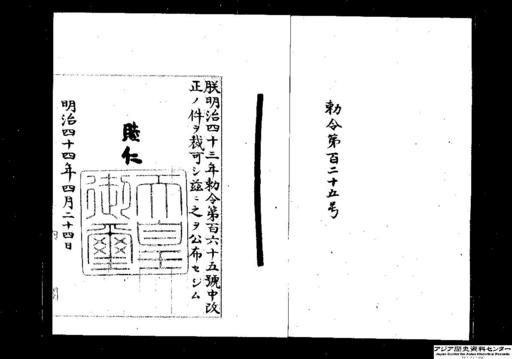 勅令第百二十五号
朕明治四十三年勅令第百六十五號中改
正ノ件ヲ裁可シ茲ニ之ヲ公布セシム
睦仁
天皇
御璽
明治四十四年四月二十四日
アジア歴史資料センター
Japan Center for Asian Historical Records